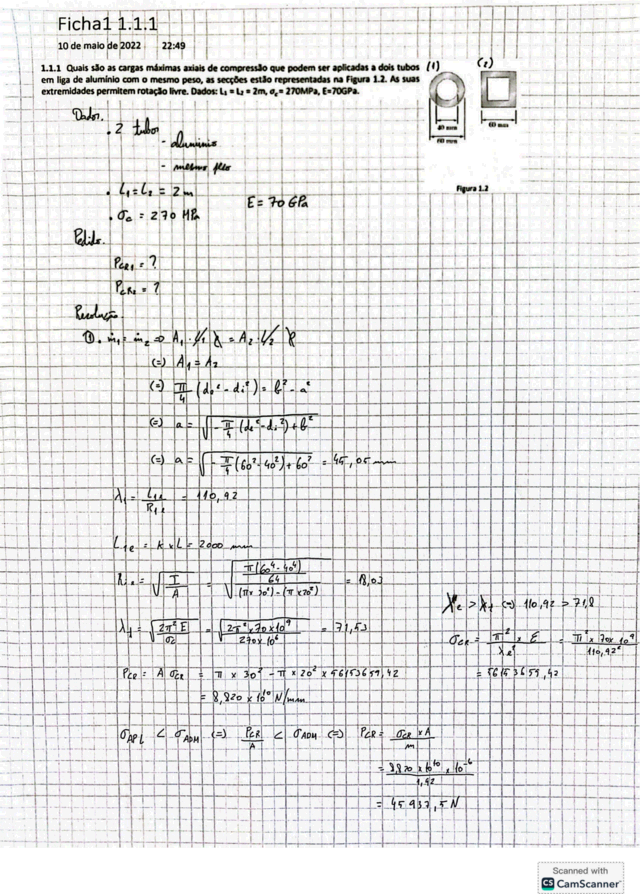 Ficha1 1.1.1
10 de maio de 2022 22:49
1.1.1 Quais são as cargas máximas axiais de compressão que podem ser aplicadas a dois tubos
em liga de alumínio com o mesmo peso, as secções estão representadas na Figura 1.2. As suas
extremidades permitem rotação livre. Dados: L₁ = L₂ = 2m, σc = 270MPa, E=70GPa.
(1) (2)
40 mm
60 mm
60 mm
Figura 1.2
Dados.
. 2 tubos
- alumínio
- mesmo peso
. L₁ = L₂ = 2 m
E = 70 GPa
. σc = 270 MPa
Pedido.
PCR1 = ?
PCR2 = ?
Resolução.
①. m₁ = m₂ => A₁ · L₁ · γ = A₂ · L₂ γ
(=) A₁ = A₂
(=) π/4 (de² - di²) = b² - a²
(=) a = √(-π/4 (de² - di²) + b²)
(=) a = √(-π/4 (60² - 40²) + 60²) = 45,05 mm
λ₁ = L1e/R1e = 110,92
L1e = K x L = 2000 mm
R1e = √(I/A) = √((π(60⁴ - 40⁴)/64)/((π x 30²) - (π x 20²))) = 18,03
λ1 = √(2π² E/σc) = √(2π² x 70 x 10⁹/270 x 10⁶) = 71,53
λe > λ1 (=) 110,92 > 71,8
σCR = π² x E/λe² = π² x 70 x 10⁹/110,92²
= 56153659,42
PCR = A σCR = π x 30² - π x 20² x 56153659,42
= 8,820 x 10¹⁰ N/mm
σAPL < σADM (=) PCR/A < σADM (=) PCR = σCR x A/m
= 8,820 x 10¹⁰ x 10⁻⁶/1,92
= 45 937,5 N
Scanned with
CS CamScanner